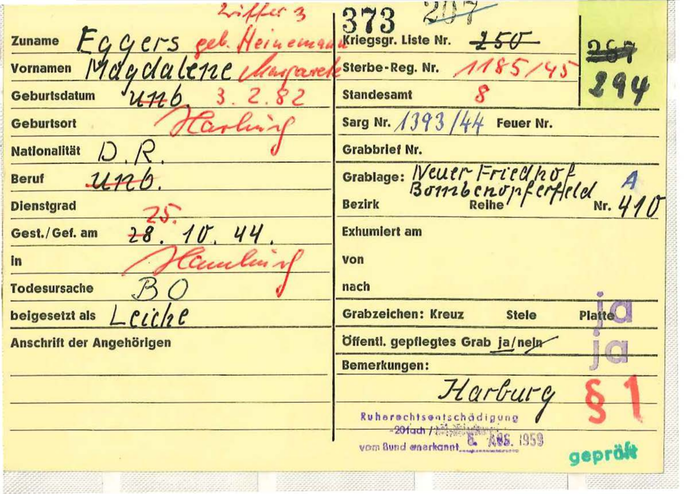 Ziffer 3
373 207
Zuname Eggers geb. Heinemann
Vornamen Magdalene Margarete
Geburtsdatum unb. 3. 2. 82
Geburtsort Harburg
Nationalität D. R.
Beruf unb.
Dienstgrad
25.
Gest./Gef. am 28. 10. 44.
in Hamburg
Todesursache BO
beigesetzt als Leiche
Anschrift der Angehörigen
Kriegsgr. Liste Nr. 250
287
294
Sterbe-Reg. Nr. 1185/45
Standesamt 8
Sarg Nr. 1393/44 Feuer Nr.
Grabbrief Nr.
Grablage: Neuer Friedhof
Bombenopferfeld A
Bezirk Reihe Nr. 410
Exhumiert am
von
nach
Grabzeichen: Kreuz Stele Platte ja
Öffentl. gepflegtes Grab ja/nein ja
Bemerkungen:
Harburg § 1
Ruherechtsentschädigung
-20fach /
vom Bund anerkannt 1959
geprüft